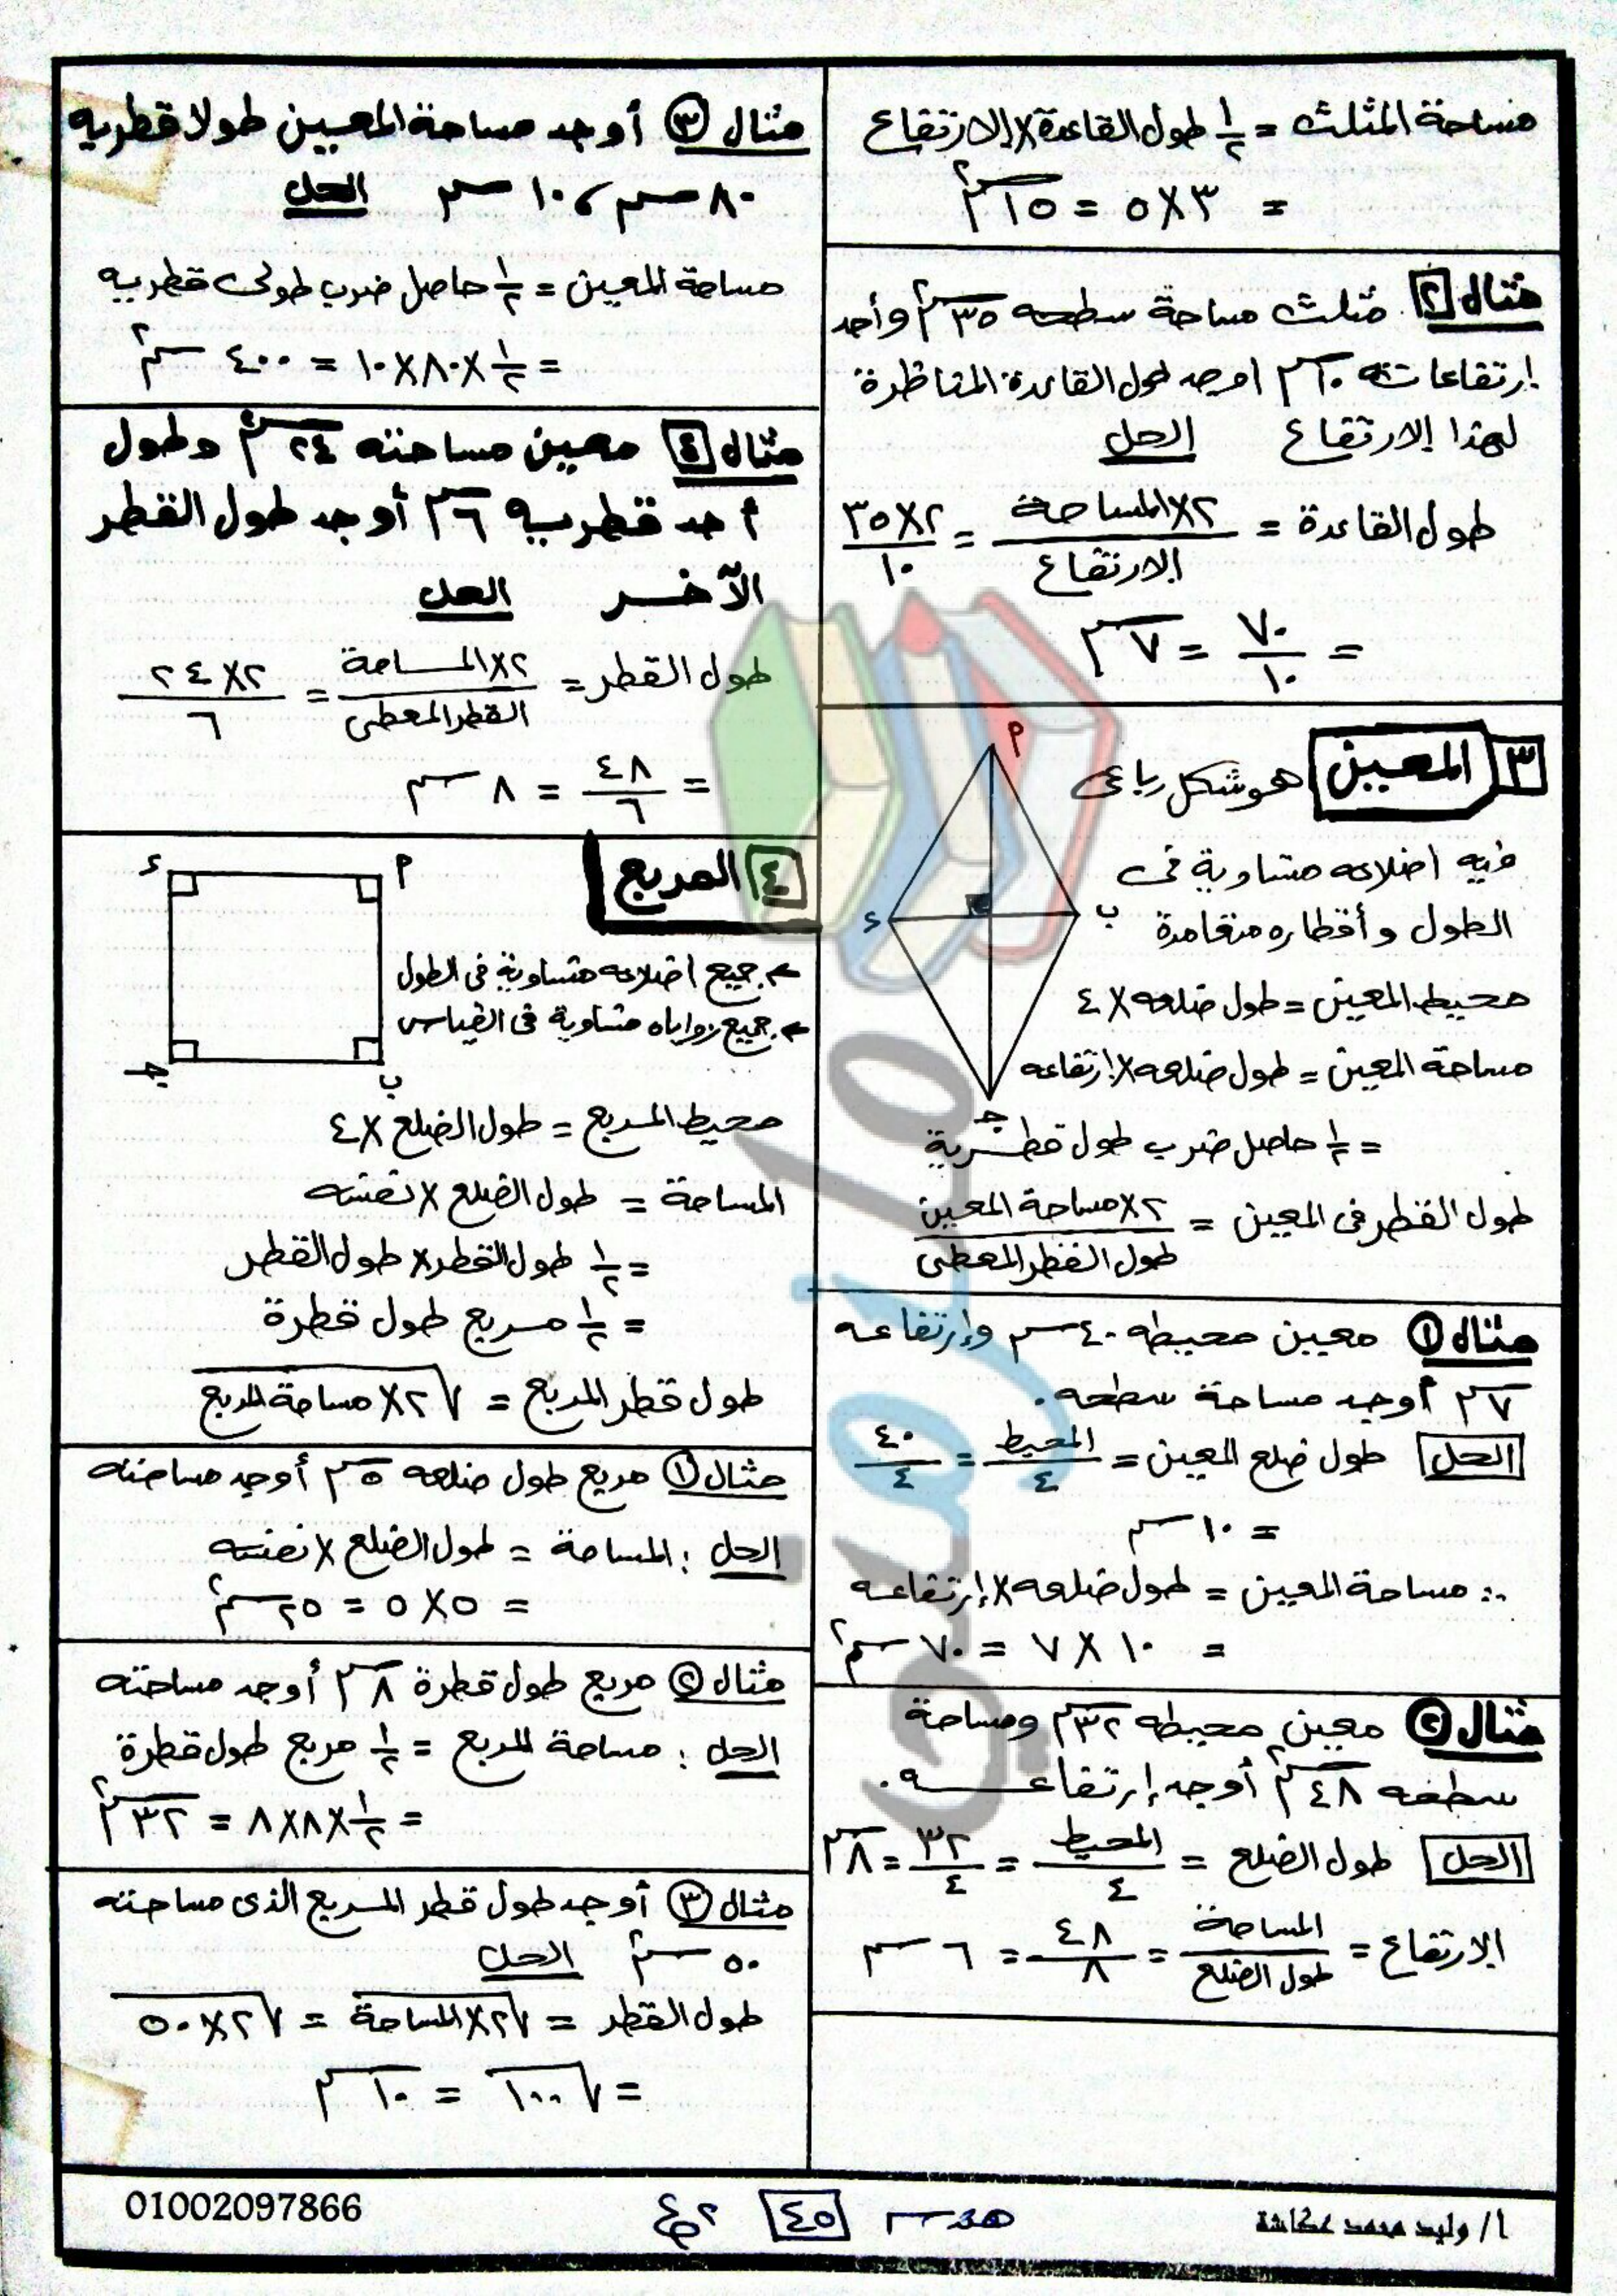 مساحة المثلث = ١/٢ طول القاعدة × الارتفاع
= ٣ × ٥ = ١٥ سم٢
مثال ٢ مثلث مساحة سطحه ٣٥ سم٢ وأحد
ارتفاعاته ١٠ سم اوجد طول القاعدة المناظرة
لهذا الارتفاع الحل
طول القاعدة = ٢ × المساحة / الارتفاع = ٢ × ٣٥ / ١٠
= ٧٠ / ١٠ = ٧ سم
٣ المعين هو شكل رباعى
فيه اضلاعه متساوية فى
الطول وأقطاره متعامدة
محيط المعين = طول ضلعه × ٤
مساحة المعين = طول ضلعه × ارتفاعه
= ١/٢ حاصل ضرب طول قطرية
طول القطر فى المعين = ٢ × مساحة المعين / طول القطر المعطى
م
ب
ء
جـ
مثال ١ معين محيطه ٤٠ سم وإرتفاعه
٧ سم أوجد مساحة سطحه.
الحل طول ضلع المعين = المحيط / ٤ = ٤٠ / ٤
= ١٠ سم
∴ مساحة المعين = طول ضلعه × إرتفاعه
= ١٠ × ٧ = ٧٠ سم٢
مثال ٢ معين محيطه ٣٢ سم ومساحة
سطحه ٤٨ سم٢ أوجد إرتفاعه.
الحل طول الضلع = المحيط / ٤ = ٣٢ / ٤ = ٨ سم
الارتفاع = المساحة / طول الضلع = ٤٨ / ٨ = ٦ سم
مثال ٣ أوجد مساحة المعين طولا قطريه
٨٠ سم ، ١٠ سم الحل
مساحة المعين = ١/٢ حاصل ضرب طولى قطريه
= ١/٢ × ٨٠ × ١٠ = ٤٠٠ سم٢
مثال ٤ معين مساحته ٢٤ سم٢ وطول
أحد قطريه ٦ سم أوجد طول القطر
الآخر الحل
طول القطر = ٢ × المساحة / القطر المعطى = ٢ × ٢٤ / ٦
= ٤٨ / ٦ = ٨ سم
٤ المربع
جميع اضلاعه متساوية فى الطول
جميع زواياه متساوية فى القياس
م
ء
جـ
ب
محيط المربع = طول الضلع × ٤
المساحة = طول الضلع × نفسه
= ١/٢ طول القطر × طول القطر
= ١/٢ مربع طول قطرة
طول قطر المربع = √٢ × مساحة المربع
مثال ١ مربع طول ضلعه ٥ سم أوجد مساحته
الحل : المساحة = طول الضلع × نفسه
= ٥ × ٥ = ٢٥ سم٢
مثال ٢ مربع طول قطرة ٨ سم أوجد مساحته
الحل : مساحة المربع = ١/٢ مربع طول قطرة
= ١/٢ × ٨ × ٨ = ٣٢ سم٢
مثال ٣ أوجد طول قطر المربع الذى مساحته
٥٠ سم٢ الحل
طول القطر = √٢ × المساحة = √٢ × ٥٠
= √١٠٠ = ١٠ سم
أ/ وليد محمد عكاشة
هندسة ٤٥ ع٢
01002097866